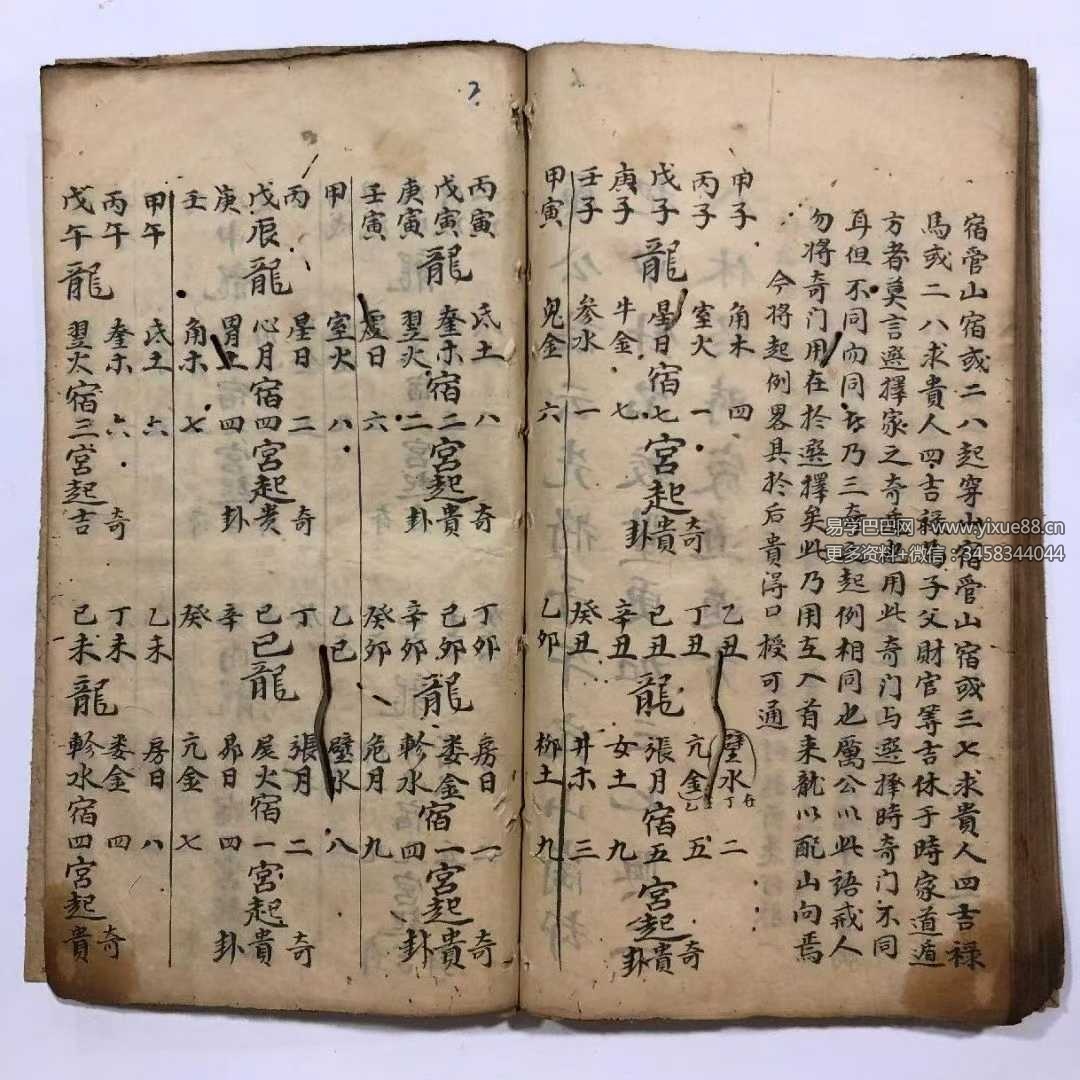 宿管山宿或二八起穿山宿管山宿或三七求貴人四吉祿
馬或二八求貴人四吉祿馬子父財官等吉休于時家道遁
方者莫言選擇家之奇貴也用此奇门与選擇時奇门不同
耳但不同而同者乃三奇之起例相同也厲公以此語戒人
勿將奇门用在於選擇矣此乃用互入首来龍以配山向焉
今將起例畧具於后貴淂口授可通
甲子 角木 四
丙子 室火 一 奇
戊子龍星日宿七宮起貴
庚子 牛金 七 卦
壬子 参水 一
甲寅 鬼金 六
乙丑 璧水 二
丁丑 亢金 五 奇
己丑龍張月宿五宮起貴
辛丑 女土 九 卦
癸丑 井木 三
乙卯 柳土 九
丙寅 氐土 八 奇
戊寅龍奎木宿二宮起貴
庚寅 翌火 二 卦
壬寅 虚日 六
甲 室火 八
丙 星日 二 奇
戊辰龍心月宿四宮起贵
庚 胃土 四 卦
壬 角木 七
甲午 氐土 六
丙午 奎木 六 奇
戊午龍翌火宿三宮起吉
丁卯 房日 一 奇
己卯龍婁金宿一宮起貴
辛卯 軫水 四 卦
癸卯 危月 九
乙巳 璧水 八
丁 張月 二 奇
己巳龍尾火宿一宮起貴
辛 昴日 四 卦
癸 亢金 七
乙未 房日 八
丁未 婁金 四 奇
己未龍軫水宿四宮起貴
易学巴巴网：www.yixue88.cn
更多资料+微信：3458344044